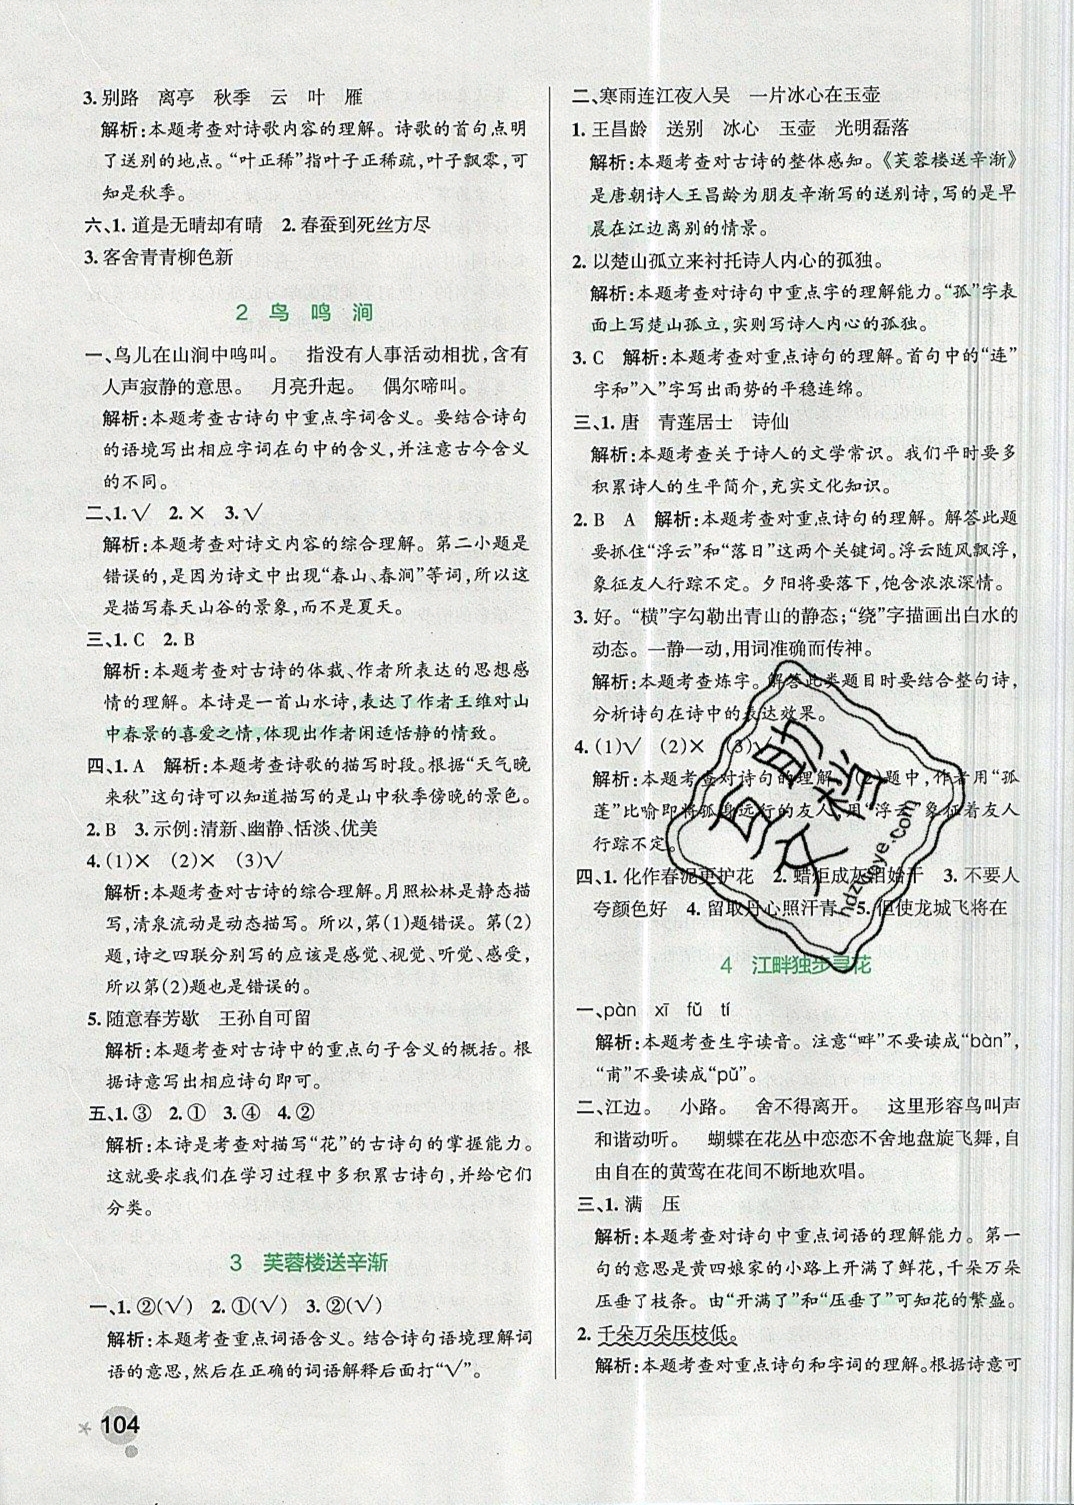 3. 别路　离亭　秋季　云　叶　雁
解析:本题考查对诗歌内容的理解。诗歌的首句点明
了送别的地点。“叶正稀”指叶子正稀疏,叶子飘零,可
知是秋季。
六、1. 道是无晴却有晴　2. 春蚕到死丝方尽
3. 客舍青青柳色新
2　鸟　鸣　涧
一、鸟儿在山涧中鸣叫。　指没有人事活动相扰,含有
人声寂静的意思。　月亮升起。　偶尔啼叫。
解析:本题考查古诗句中重点字词含义。要结合诗句
的语境写出相应字词在句中的含义,并注意古今含义
的不同。
二、1. √　2. ×　3. √
解析:本题考查对诗文内容的综合理解。第二小题是
错误的,是因为诗文中出现“春山、春涧”等词,所以这
是描写春天山谷的景象,而不是夏天。
三、1. C　2. B
解析:本题考查对古诗的体裁、作者所表达的思想感
情的理解。本诗是一首山水诗,表达了作者王维对山
中春景的喜爱之情,体现出作者闲适恬静的情致。
四、1. A　解析:本题考查诗歌的描写时段。根据“天气晚
来秋”这句诗可以知道描写的是山中秋季傍晚的景色。
2. B　3. 示例:清新、幽静、恬淡、优美
4. (1)×　(2)×　(3)√
解析:本题考查对古诗的综合理解。月照松林是静态描
写,清泉流动是动态描写。所以,第(1)题错误。第(2)
题,诗之四联分别写的应该是感觉、视觉、听觉、感受,
所以第(2)题也是错误的。
5. 随意春芳歇　王孙自可留
解析:本题考查对古诗中的重点句子含义的概括。根
据诗意写出相应诗句即可。
五、1. ③　2. ①　3. ④　4. ②
解析:本诗是考查对描写“花”的古诗句的掌握能力。
这就要求我们在学习过程中多积累古诗句,并给它们
分类。
3　芙蓉楼送辛渐
一、1. ②(√)　2. ①(√)　3. ②(√)
解析:本题考查重点词语含义。结合诗句语境理解词
语的意思,然后在正确的词语解释后面打“√”。
104
二、寒雨连江夜入吴　一片冰心在玉壶
1. 王昌龄　送别　冰心　玉壶　光明磊落
解析:本题考查对古诗的整体感知。《芙蓉楼送辛渐》
是唐朝诗人王昌龄为朋友辛渐写的送别诗,写的是早
晨在江边离别的情景。
2. 以楚山孤立来衬托诗人内心的孤独。
解析:本题考查对诗句中重点字的理解能力。“孤”字表
面上写楚山孤立,实则写诗人内心的孤独。
3. C　解析:本题考查对重点诗句的理解。首句中的“连”
字和“入”字写出雨势的平稳连绵。
三、1. 唐　青莲居士　诗仙
解析:本题考查关于诗人的文学常识。我们平时要多
积累诗人的生平简介,充实文化知识。
2. B　A　解析:本题考查对重点诗句的理解。解答此题
要抓住“浮云”和“落日”这两个关键词。浮云随风飘浮,
象征友人行踪不定。夕阳将要落下,饱含浓浓深情。
3. 好。“横”字勾勒出青山的静态;“绕”字描画出白水的
动态。一静一动,用词准确而传神。
解析:本题考查炼字。解答此类题目时要结合整句诗,
分析诗句在诗中的表达效果。
4. (1)√　(2)×　(3)√
解析:本题考查对诗句的理解。(2)题中,作者用“孤
蓬”比喻即将孤身远行的友人,用“浮云”象征着友人
行踪不定。
四、1. 化作春泥更护花　2. 蜡炬成灰泪始干　3. 不要人
夸颜色好　4. 留取丹心照汗青　5. 但使龙城飞将在
作业精灵
hdzuoye.com
4　江畔独步寻花
一、pàn　xī　fǔ　tí
解析:本题考查生字读音。注意“畔”不要读成“bàn”,
“甫”不要读成“pǔ”。
二、江边。　小路。　舍不得离开。　这里形容鸟叫声
和谐动听。　蝴蝶在花丛中恋恋不舍地盘旋飞舞,自
由自在的黄莺在花间不断地欢唱。
三、1. 满　压
解析:本题考查对诗句中重点词语的理解能力。第一
句的意思是黄四娘家的小路上开满了鲜花,千朵万朵
压垂了枝条。由“开满了”和“压垂了”可知花的繁盛。
2. 千朵万朵压枝低。
解析:本题考查对重点诗句和字词的理解。根据诗意可